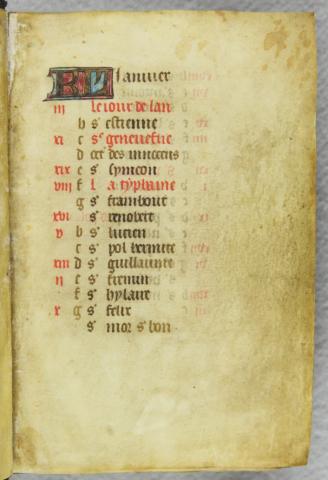 KL Januier
iii le iour de lan
b s' estienne
xi c s'e geneuefue
d oct' des innocens
xix e s' symeon
viii f l a typhaine
g s' frambout
xvi s' renobert
v b s' lucien
c s' pol hermite
xiii d s' guillaume
ii e s' firmin
f s' hylaire
x g s' felix
s' mor s' bon